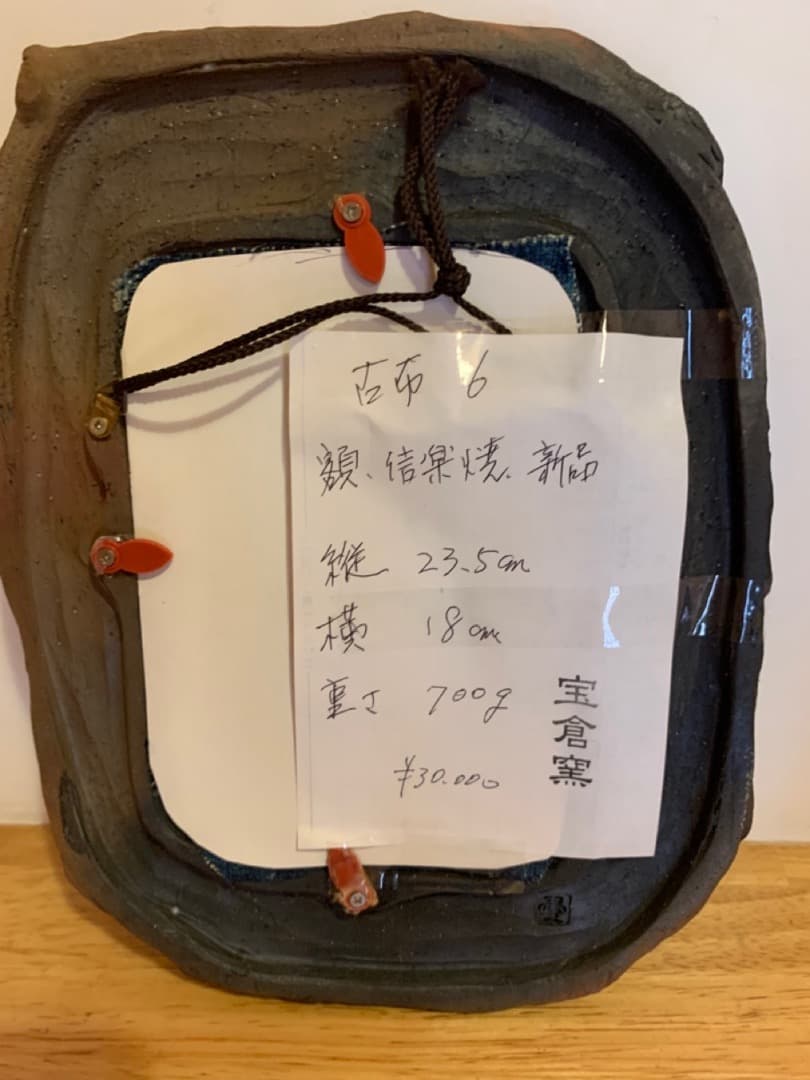 古布 6
額、信楽焼、新品
縦 23.5cm
横 18cm
重さ 700g
¥30.000
宝倉窯